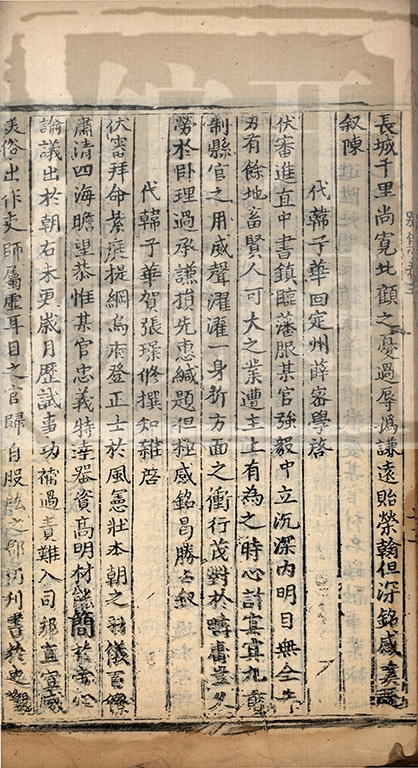 長城千里尚寬北顧之憂過辱㧑謙遠貽榮翰但深銘感奚既
叙陳
代韓子華回定州薛密學啓
伏審進直中書鎮臨藩服某官強毅中立沉深內明目無全牛
刃有餘地畜賢人可大之業遭主上有為之時心計寘寘九
制縣官之用威聲濯濯一身折方面之衝行茂對於疇庸豈久
勞於卧理過承謙損先惠緘題但極感銘曷勝云叙
代韓子華賀張璪修撰知雜啓
伏審拜命紫庭提綱烏府登正士於風憲壯本朝之羽儀百僚
肅清四海瞻望恭惟某官忠義特達器資高明材𢡟簡於帝心
論議出於朝右未更歲月歷試事功補過責難入司邦直宣威
美俗出作吏師屬虛耳目之官歸自股肱之郡乃刋書於史觀